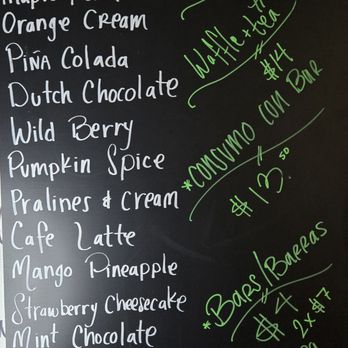 Orange Cream
Piña Colada
Dutch Chocolate
Wild Berry
Pumpkin Spice
Pralines & Cream
Cafe Latte
Mango Pineapple
Strawberry Cheesecake
Mint Chocolate
Waffle + tea
$14
*Consumo con Bar
$13.50
*Bars/Barras
$4
2x$7